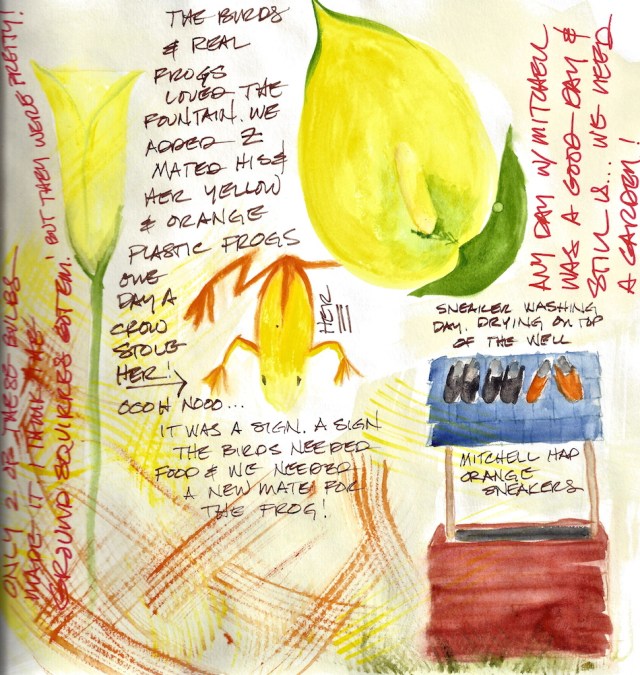 THE BIRDS
& REAL
FROGS
LOVED THE
FOUNTAIN. WE
ADDED 2
MATED HIS &
HER YELLOW
& ORANGE
PLASTIC FROGS
ONE
DAY A
CROW
STOLE
HER!
OOOH NOOO...
IT WAS A SIGN. A SIGN
THE BIRDS NEEDED
FOOD & WE NEEDED
A NEW MATE FOR
THE FROG!
HER
ONLY 2 OF THESE BULBS
MADE IT. I THINK THE
GROUND SQUIRRES GOT EM! BUT THEY WERE PRETTY!
ANY DAY W/ MITCHELL
WAS A GOOD DAY &
STILL IS... WE NEED
A GARDEN!
SNEAKER WASHING
DAY. DRYING ON TOP
OF THE WELL
MITCHELL HAD
ORANGE
SNEAKERS